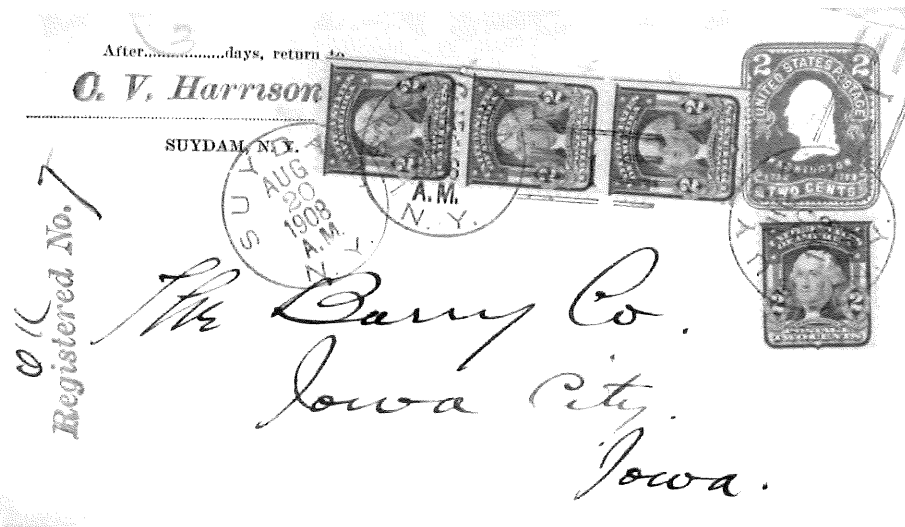 After................days, return to
C. V. Harrison
SUYDAM, N. Y.
SUYDA
AUG
20
1908
A.M.
N.Y.
A.M.
N.Y.
2 2
UNITED STATES POSTAGE
TWO CENTS
Registered No. 7
The Barry Co.
Iowa City.
Iowa.